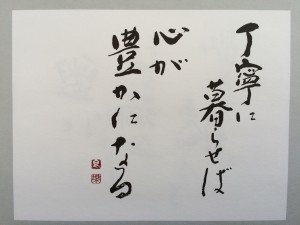 丁寧に
暮らせば
心が
豊かになる